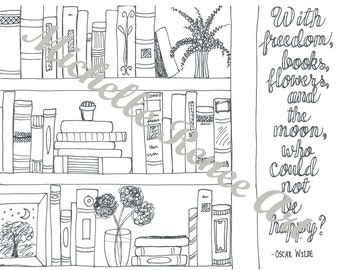 With
freedom,
books,
flowers,
and
the
moon,
who
could
not
be
happy?
-OSCAR WILDE
Michelle Renee Art